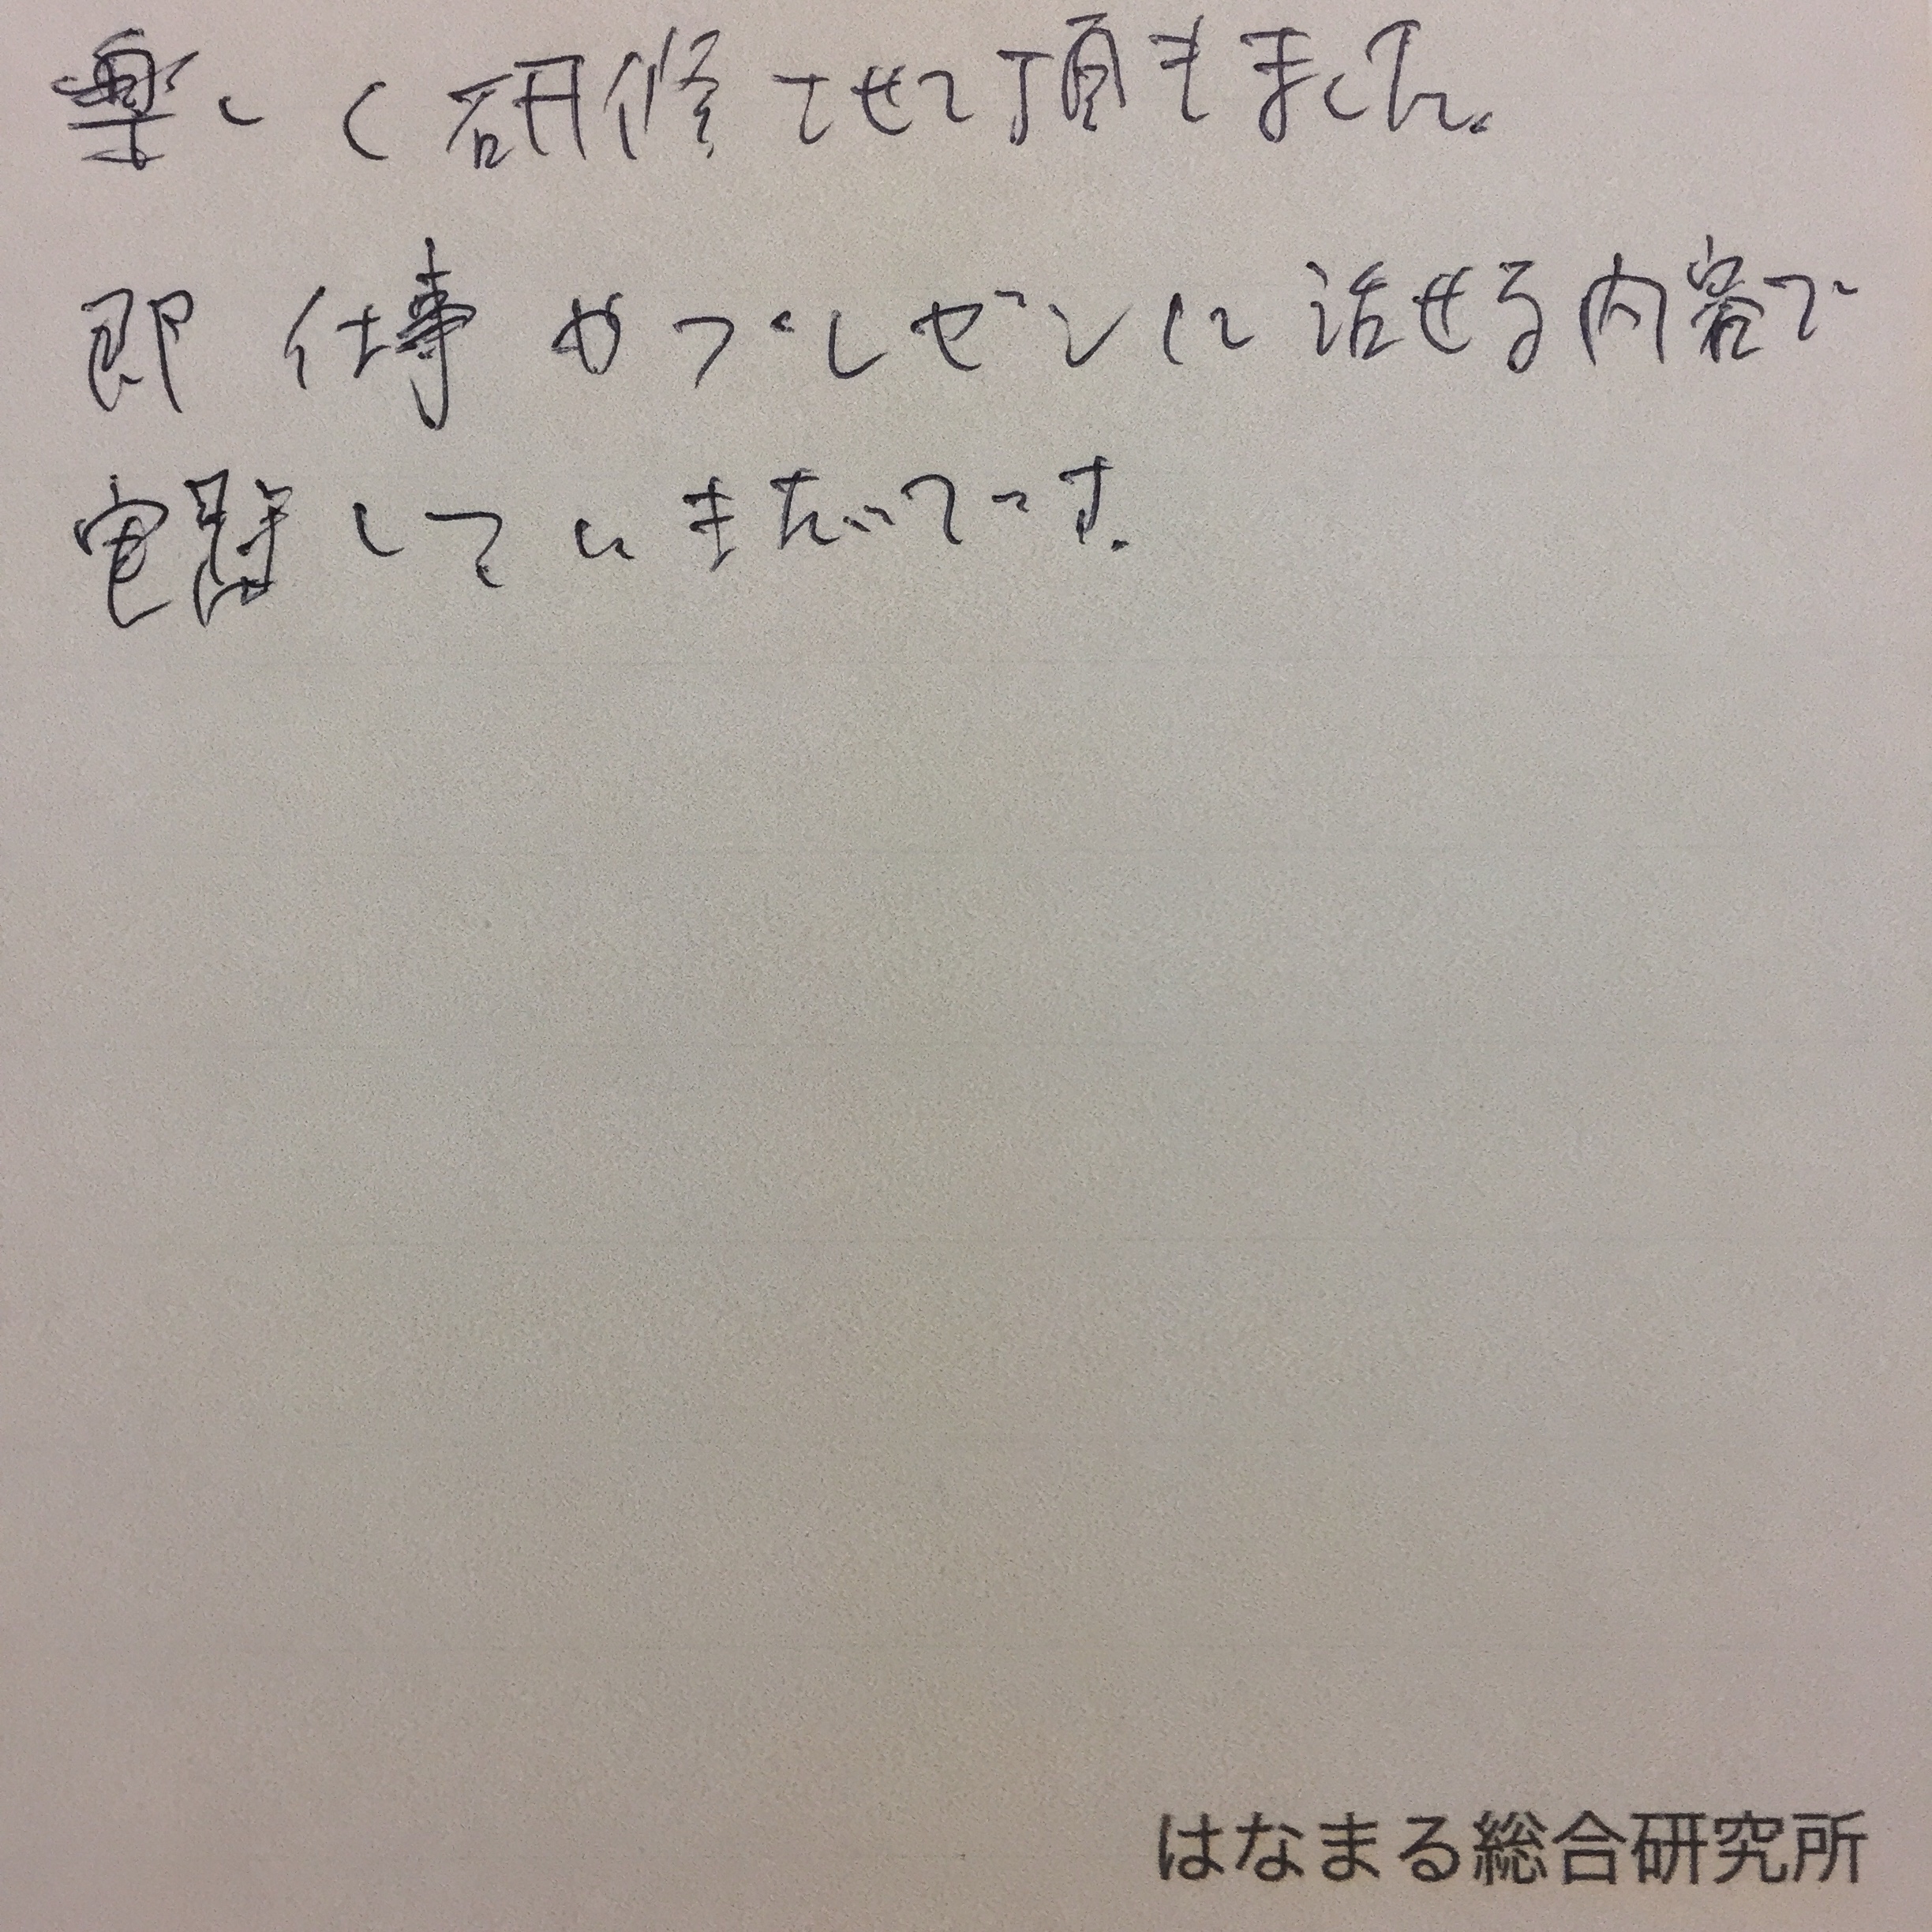 楽しく研修させて頂きました。
即 仕事やプレゼンに活せる内容で
実践していきたいです。
はなまる総合研究所